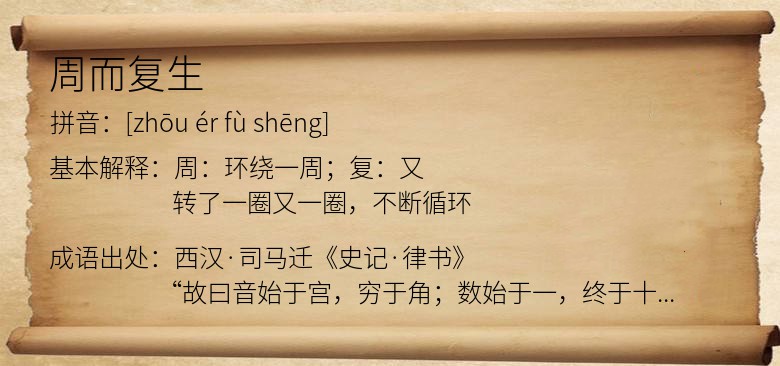 周而复生
拼音：[zhōu ér fù shēng]
基本解释：周：环绕一周；复：又
转了一圈又一圈，不断循环
成语出处：西汉·司马迁《史记·律书》
“故曰音始于宫，穷于角；数始于一，终于十...